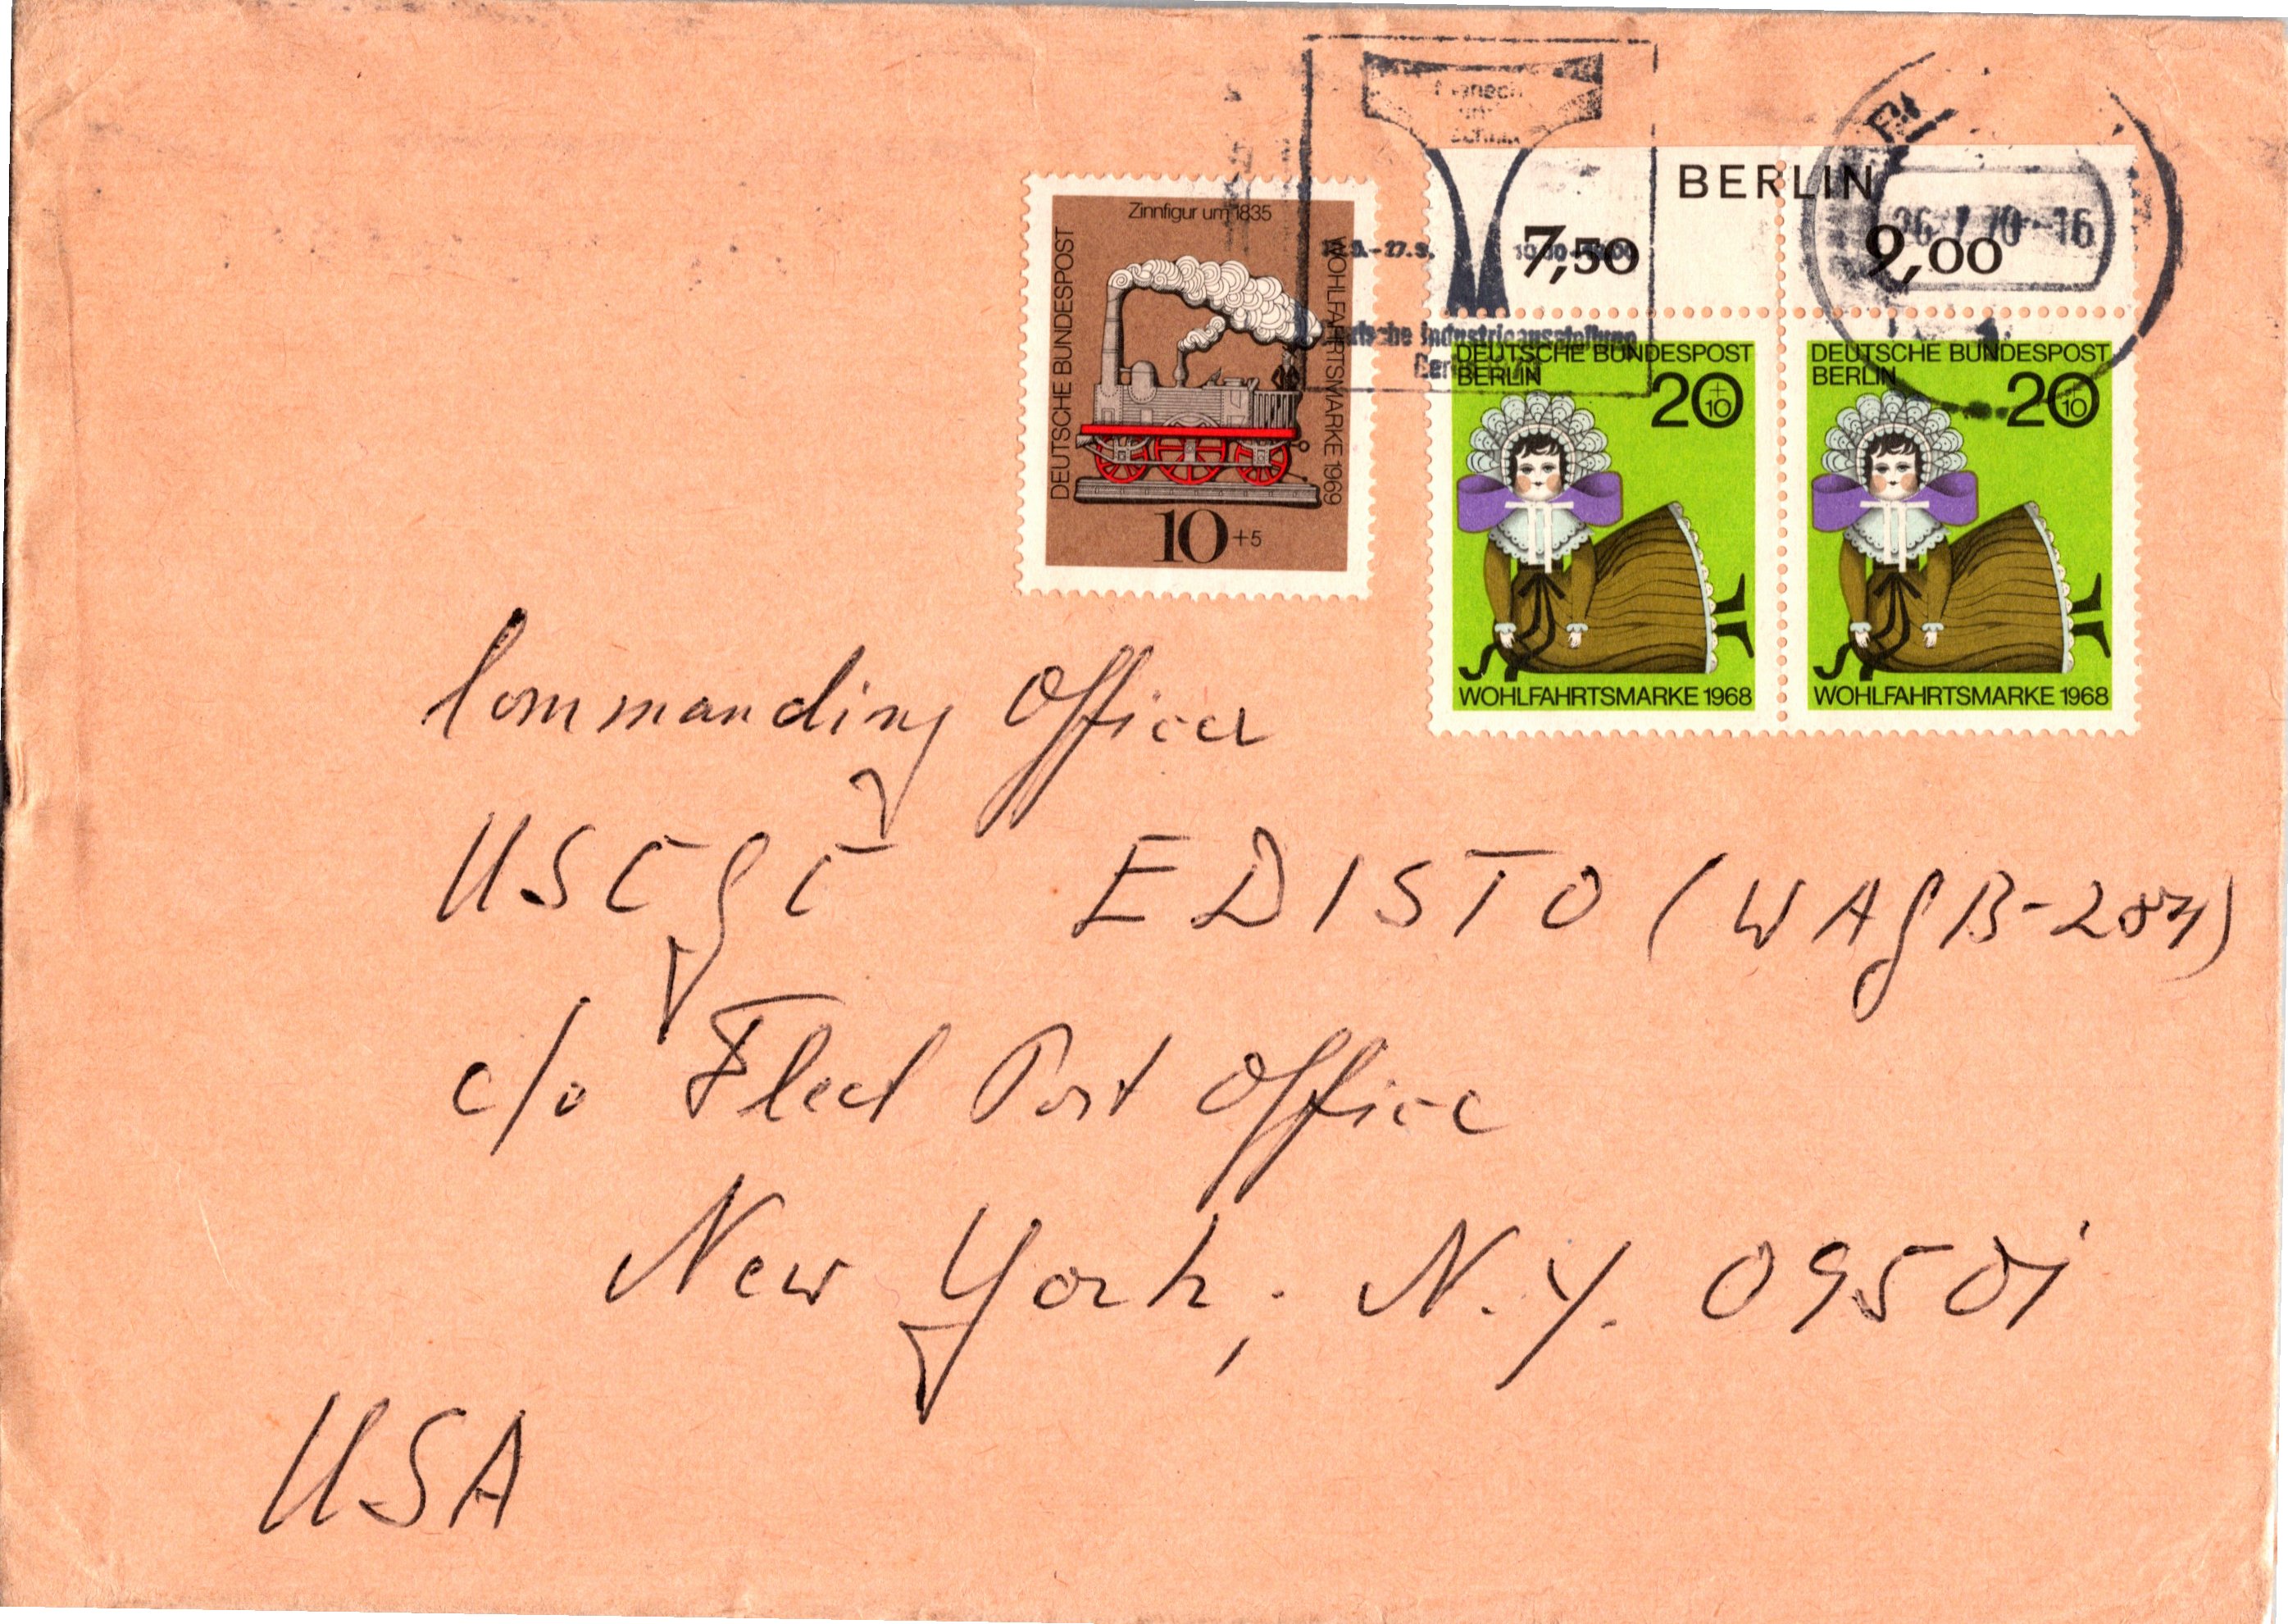 BERLIN
7,50 9,00
26. 70-16
Zinnfigur um 1835
DEUTSCHE BUNDESPOST
WOHLFAHRTSMARKE 1969
10+5
-27.9.
Industrieausstellung
DEUTSCHE BUNDESPOST
BERLIN
20+10
WOHLFAHRTSMARKE 1968
DEUTSCHE BUNDESPOST
BERLIN
20+10
WOHLFAHRTSMARKE 1968
Commanding Officer
USCGC EDISTO (WAGB-284)
c/o Fleet Post Office
New York, N.Y. 09501
USA